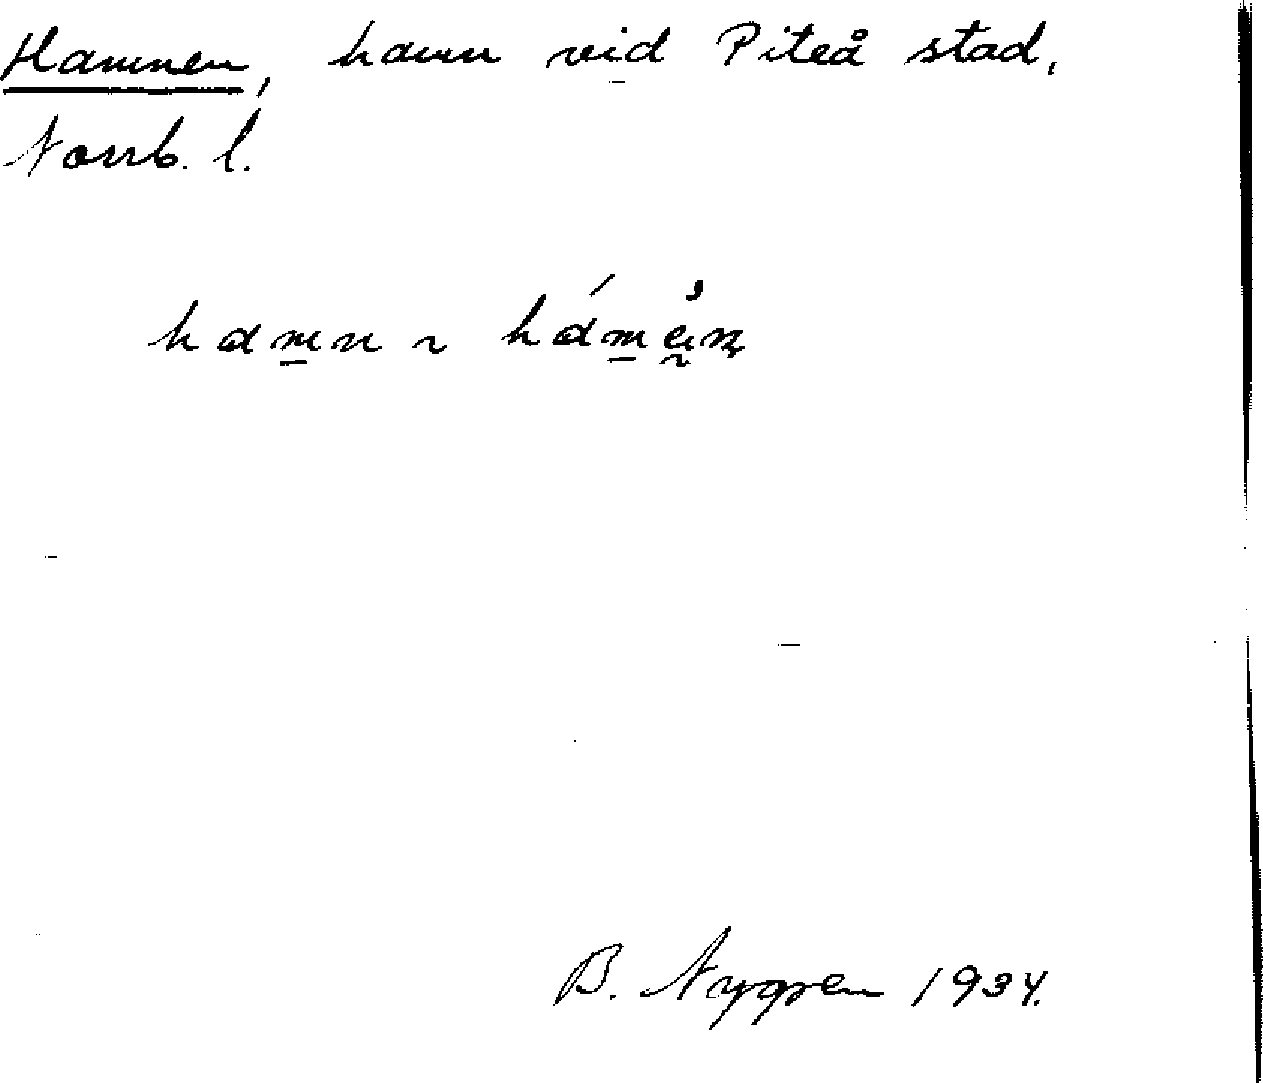 Hamnen, hamn vid Piteå stad,
Norrb. l.
hamn ~
B. Nygren 1934.